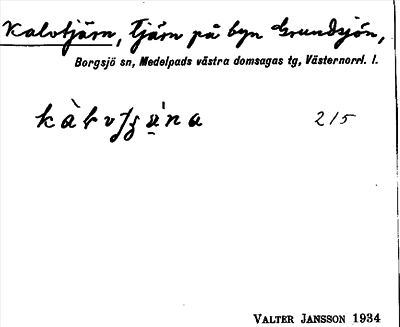 Kalvtjärn, Tjärn på byn Grundsjön,
Borgsjö sn, Medelpads västra domsagas tg, Västernorrl. l.
215
VALTER JANSSON 1934